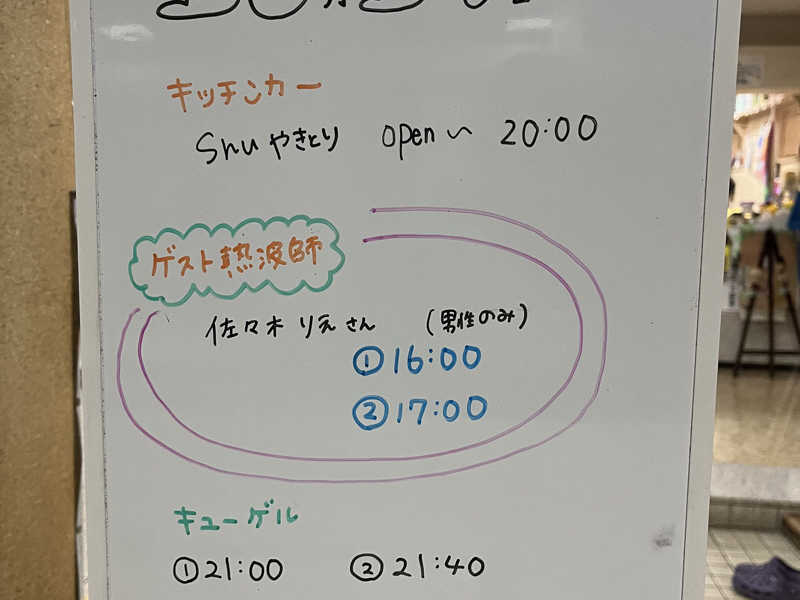 キッチンカー
Shuやきとり open 〜 20:00
ゲスト熱波師
佐々木 りえさん (男性のみ)
①16:00
②17:00
キューゲル
①21:00 ②21:40